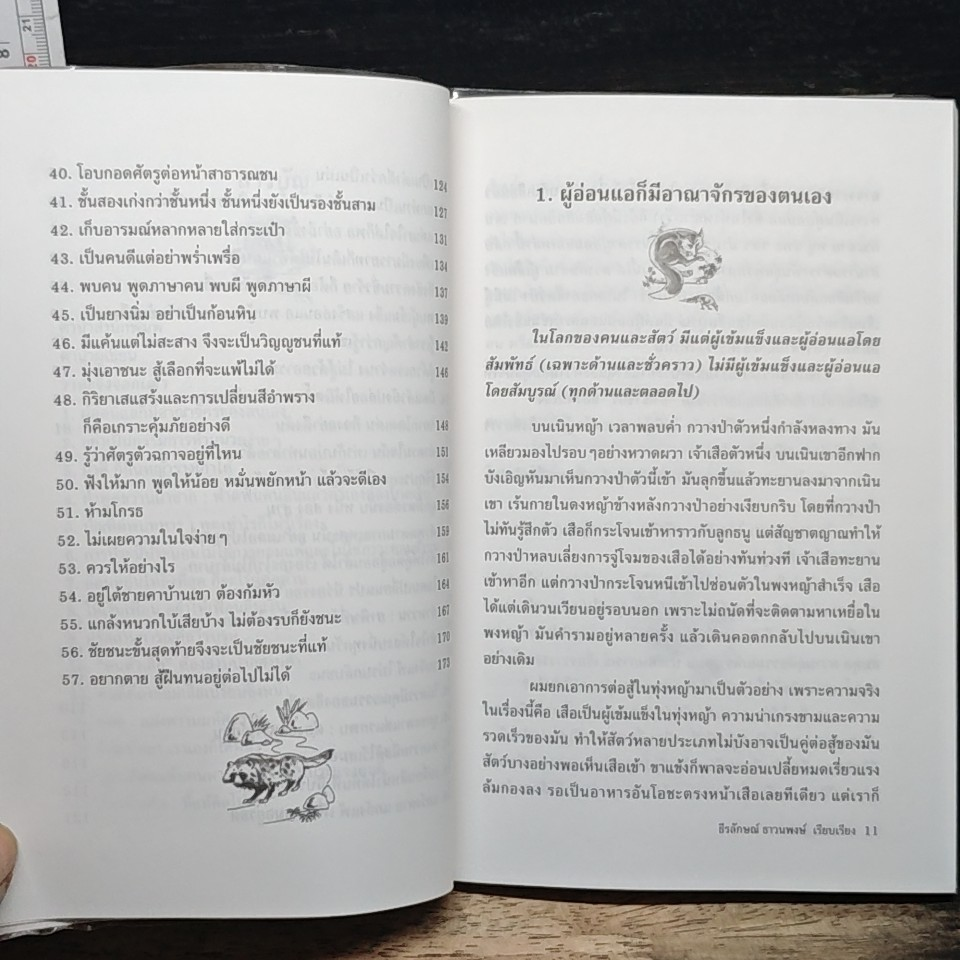 8
21
20
40. โอบกอดศัตรูต่อหน้าสาธารณชน 124
41. ชั้นสองเก่งกว่าชั้นหนึ่ง ชั้นหนึ่งยังเป็นรองชั้นสาม 127
42. เก็บอารมณ์หลากหลายใส่กระเป๋า 131
43. เป็นคนดีแต่อย่าพร่ำเพรื่อ 134
44. พบคน พูดภาษาคน พบผี พูดภาษาผี 137
45. เป็นยางนิ่ม อย่าเป็นก้อนหิน 139
46. มีแค้นแต่ไม่สะสาง จึงจะเป็นวิญญูชนที่แท้ 142
47. มุ่งเอาชนะ สู้เลือกที่จะแพ้ไม่ได้ 146
48. กิริยาเสแสร้งและการเปลี่ยนสีอำพราง
ก็คือเกราะคุ้มภัยอย่างดี 148
49. รู้ว่าศัตรูตัวฉกาจอยู่ที่ไหน 151
50. ฟังให้มาก พูดให้น้อย หมั่นพยักหน้า แล้วจะดีเอง 154
51. ห้ามโกรธ 156
52. ไม่เผยความในใจง่ายๆ 159
53. ควรให้อย่างไร 161
54. อยู่ใต้ชายคาบ้านเขา ต้องก้มหัว 164
55. แกล้งหนวกใบ้เสียบ้าง ไม่ต้องรบก็ยังชนะ 167
56. ชัยชนะขั้นสุดท้ายจึงจะเป็นชัยชนะที่แท้ 170
57. อยากตาย สู้ฝืนทนอยู่ต่อไปไม่ได้ 173
1. ผู้อ่อนแอก็มีอาณาจักรของตนเอง
ในโลกของคนและสัตว์ มีแต่ผู้เข้มแข็งและผู้อ่อนแอโดย
สัมพัทธ์ (เฉพาะด้านและชั่วคราว) ไม่มีผู้เข้มแข็งและผู้อ่อนแอ
โดยสัมบูรณ์ (ทุกด้านและตลอดไป)
บนเนินหญ้า เวลาพลบค่ำ กวางป่าตัวหนึ่งกำลังหลงทาง มัน
เหลียวมองไปรอบๆอย่างหวาดผวา เจ้าเสือตัวหนึ่ง บนเนินเขาอีกฟาก
บังเอิญหันมาเห็นกวางป่าตัวนี้เข้า มันลุกขึ้นแล้วทะยานลงมาจากเนิน
เขา เร้นกายในดงหญ้าข้างหลังกวางป่าอย่างเงียบกริบ โดยที่กวางป่า
ไม่ทันรู้สึกตัว เสือก็กระโจนเข้าหาราวกับลูกธนู แต่สัญชาตญาณทำให้
กวางป่าหลบเลี่ยงการจู่โจมของเสือได้อย่างทันท่วงที เจ้าเสือทะยาน
เข้าหาอีก แต่กวางป่ากระโจนหนีเข้าไปซ่อนตัวในพงหญ้าสำเร็จ เสือ
ได้แต่เดินวนเวียนอยู่รอบนอก เพราะไม่ถนัดที่จะติดตามหาเหยื่อใน
พงหญ้า มันคำรามอยู่หลายครั้ง แล้วเดินคอตกกลับไปบนเนินเขา
อย่างเดิม
ผมยกเอาการต่อสู้ในทุ่งหญ้ามาเป็นตัวอย่าง เพราะความจริง
ในเรื่องนี้คือ เสือเป็นผู้เข้มแข็งในทุ่งหญ้า ความน่าเกรงขามและความ
รวดเร็วของมัน ทำให้สัตว์หลายประเภทไม่บังอาจเป็นคู่ต่อสู้ของมัน
สัตว์บางอย่างพอเห็นเสือเข้า ขาแข้งก็พาลจะอ่อนเปลี้ยหมดเรี่ยวแรง
ล้มกองลง รอเป็นอาหารอันโอชะตรงหน้าเสือเลยทีเดียว แต่เราก็
ธีรลักษณ์ ธาวนพงษ์ เรียบเรียง 11